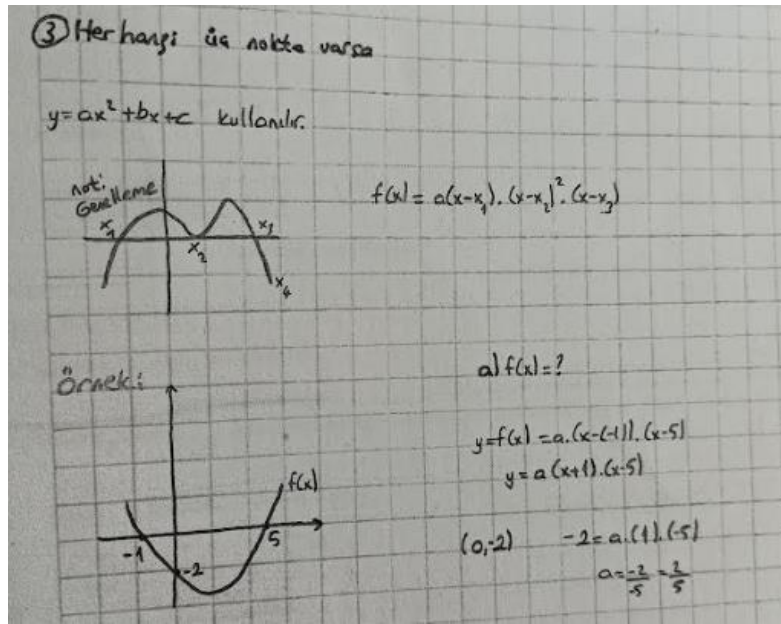 ③ Her hangi üç nokta varsa
y=ax²+bx+c kullanılır.
not:
Genelleme
x₁
x₂
x₃
x₄
f(x) = a(x-x₁).(x-x₂)².(x-x₃)
Örnek:
f(x)
-1
5
-2
a) f(x)=?
y=f(x) = a.(x-(-1)).(x-5)
y=a(x+1).(x-5)
(0,-2) -2=a.(1).(-5)
a=-2/-5=2/5